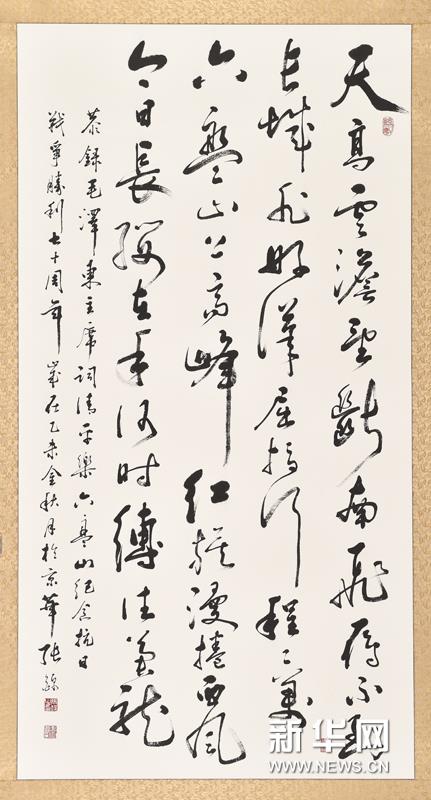 天高雲澹望斷南飛雁不到
長城非好漢屈指行程二萬
六盤山上高峰紅旗漫捲西風
今日長纓在手何時縛住蒼龍
恭録毛澤東主席詞清平樂六盤山紀念抗日
戰爭勝利七十周年歲在乙未金秋月於京華張
新华网
WWW.NEWS.CN